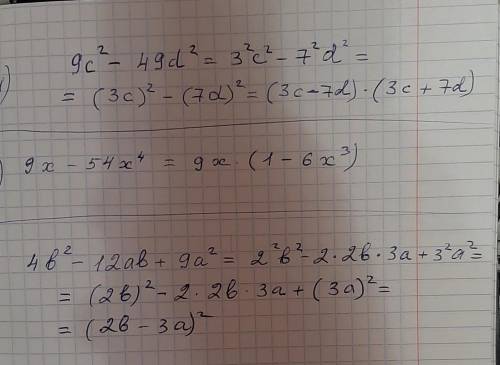 9c² - 49d² = 3²c² - 7²d² =
= (3c)² - (7d)² = (3c - 7d) · (3c + 7d)
) 9x - 54x⁴ = 9x · (1 - 6x³)
4b² - 12ab + 9a² = 2²b² - 2 · 2b · 3a + 3²a² =
= (2b)² - 2 · 2b · 3a + (3a)² =
= (2b - 3a)²